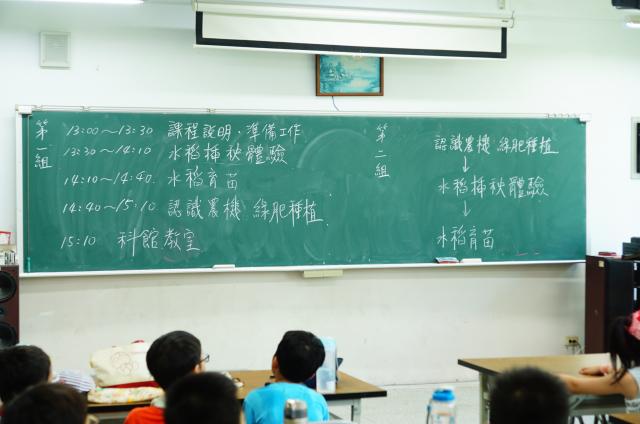 第一組
13:00～13:30 課程說明、準備工作
13:30～14:10 水稻插秧體驗
14:10～14:40. 水稻育苗
14:40～15:10. 認識農機 綠肥種植.
15:10 科館教室
第二組
認識農機 綠肥種植
↓
水稻插秧體驗
↓
水稻育苗